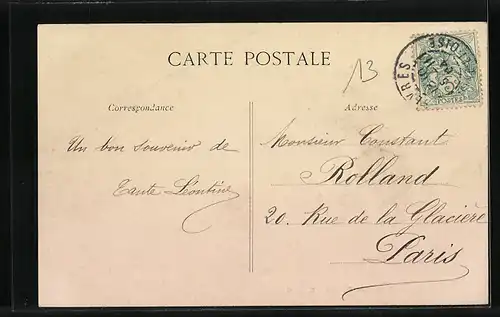 CARTE POSTALE
13
Correspondance
Adresse
Un bon souvenir de
Tante Léontine
Monsieur Constant
Rolland
20. Rue de la Glacière
Paris
POSTES